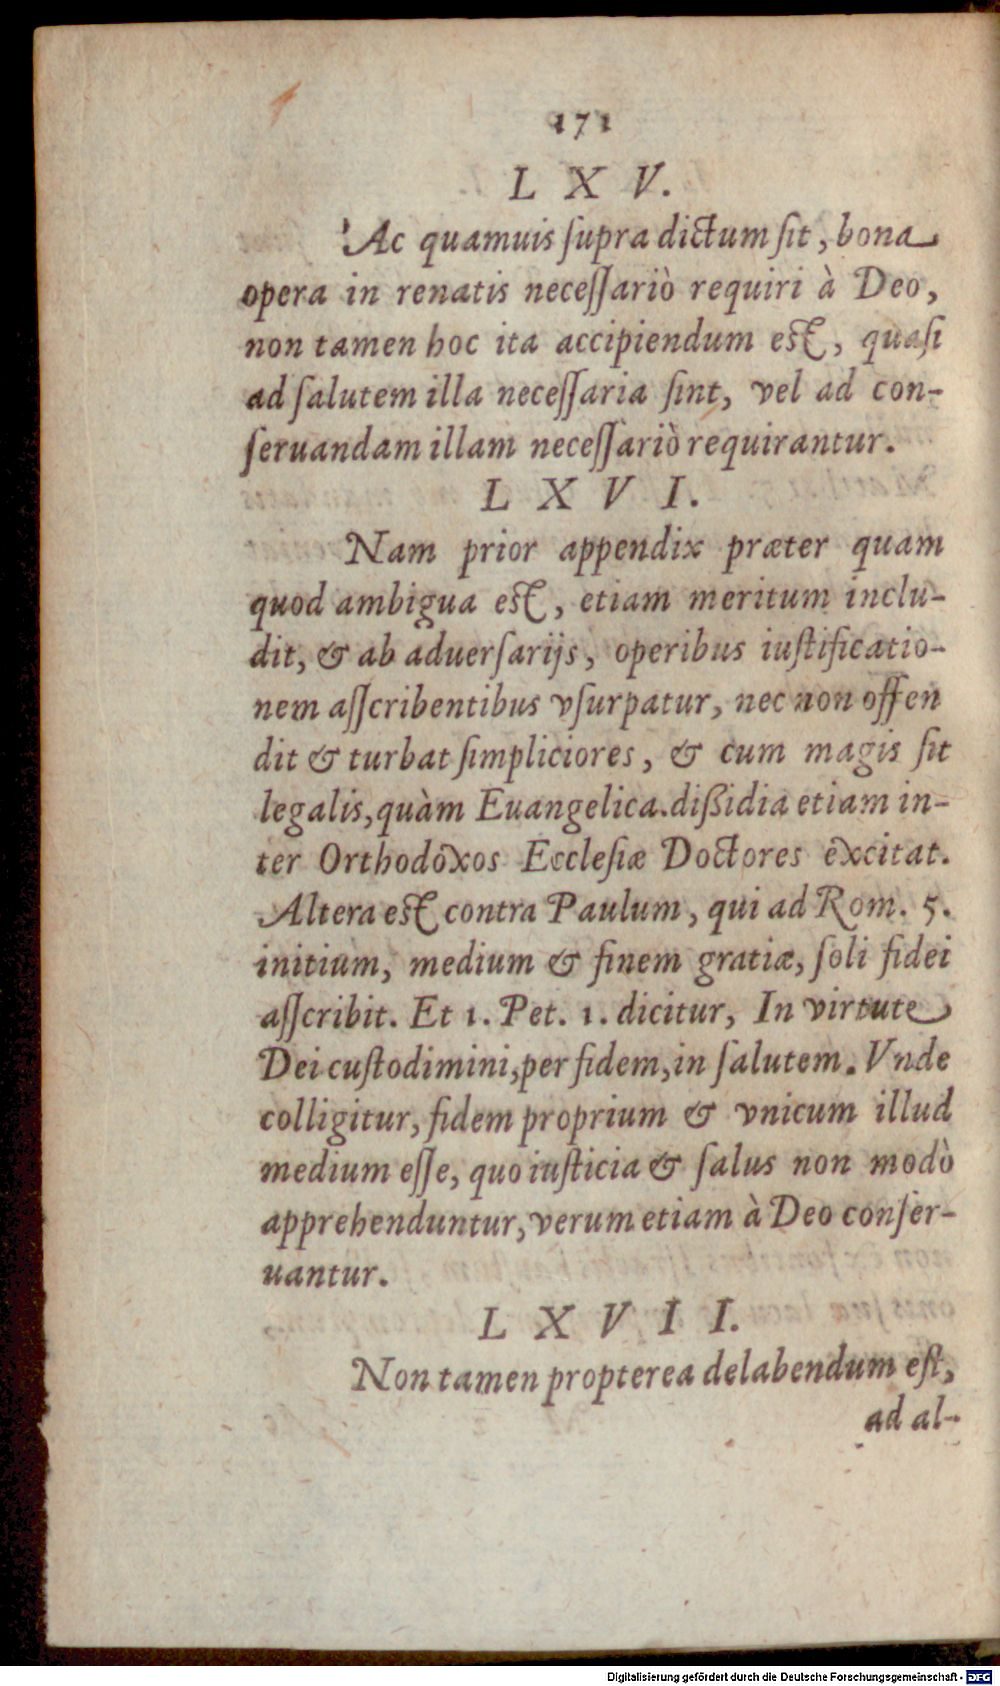 171
L X V.
Ac quamuis ſupra dictum ſit, bona
opera in renatis neceſſariò requiri à Deo,
non tamen hoc ita accipiendum eſt, quaſi
ad ſalutem illa neceſſaria ſint, vel ad con-
ſeruandam illam neceſſariò requirantur.
L X V I.
Nam prior appendix præter quam
quod ambigua eſt, etiam meritum inclu-
dit, & ab aduerſarijs, operibus iuſtificatio-
nem aſſcribentibus vſurpatur, nec non offen
dit & turbat ſimpliciores, & cum magis ſit
legalis, quàm Euangelica. dißidia etiam in-
ter Orthodoxos Eccleſiæ Doctores excitat.
Altera eſt contra Paulum, qui ad Rom. 5.
initium, medium & finem gratiæ, ſoli fidei
aſſcribit. Et 1. Pet. 1. dicitur, In virtute
Dei cuſtodimini, per fidem, in ſalutem. Vnde
colligitur, fidem proprium & vnicum illud
medium eſſe, quo iuſticia & ſalus non modò
apprehenduntur, verum etiam à Deo conſer-
uantur.
L X V I I.
Non tamen propterea delabendum eſt,
ad al-
Digitalisierung gefördert durch die Deutsche Forschungsgemeinschaft - DFG